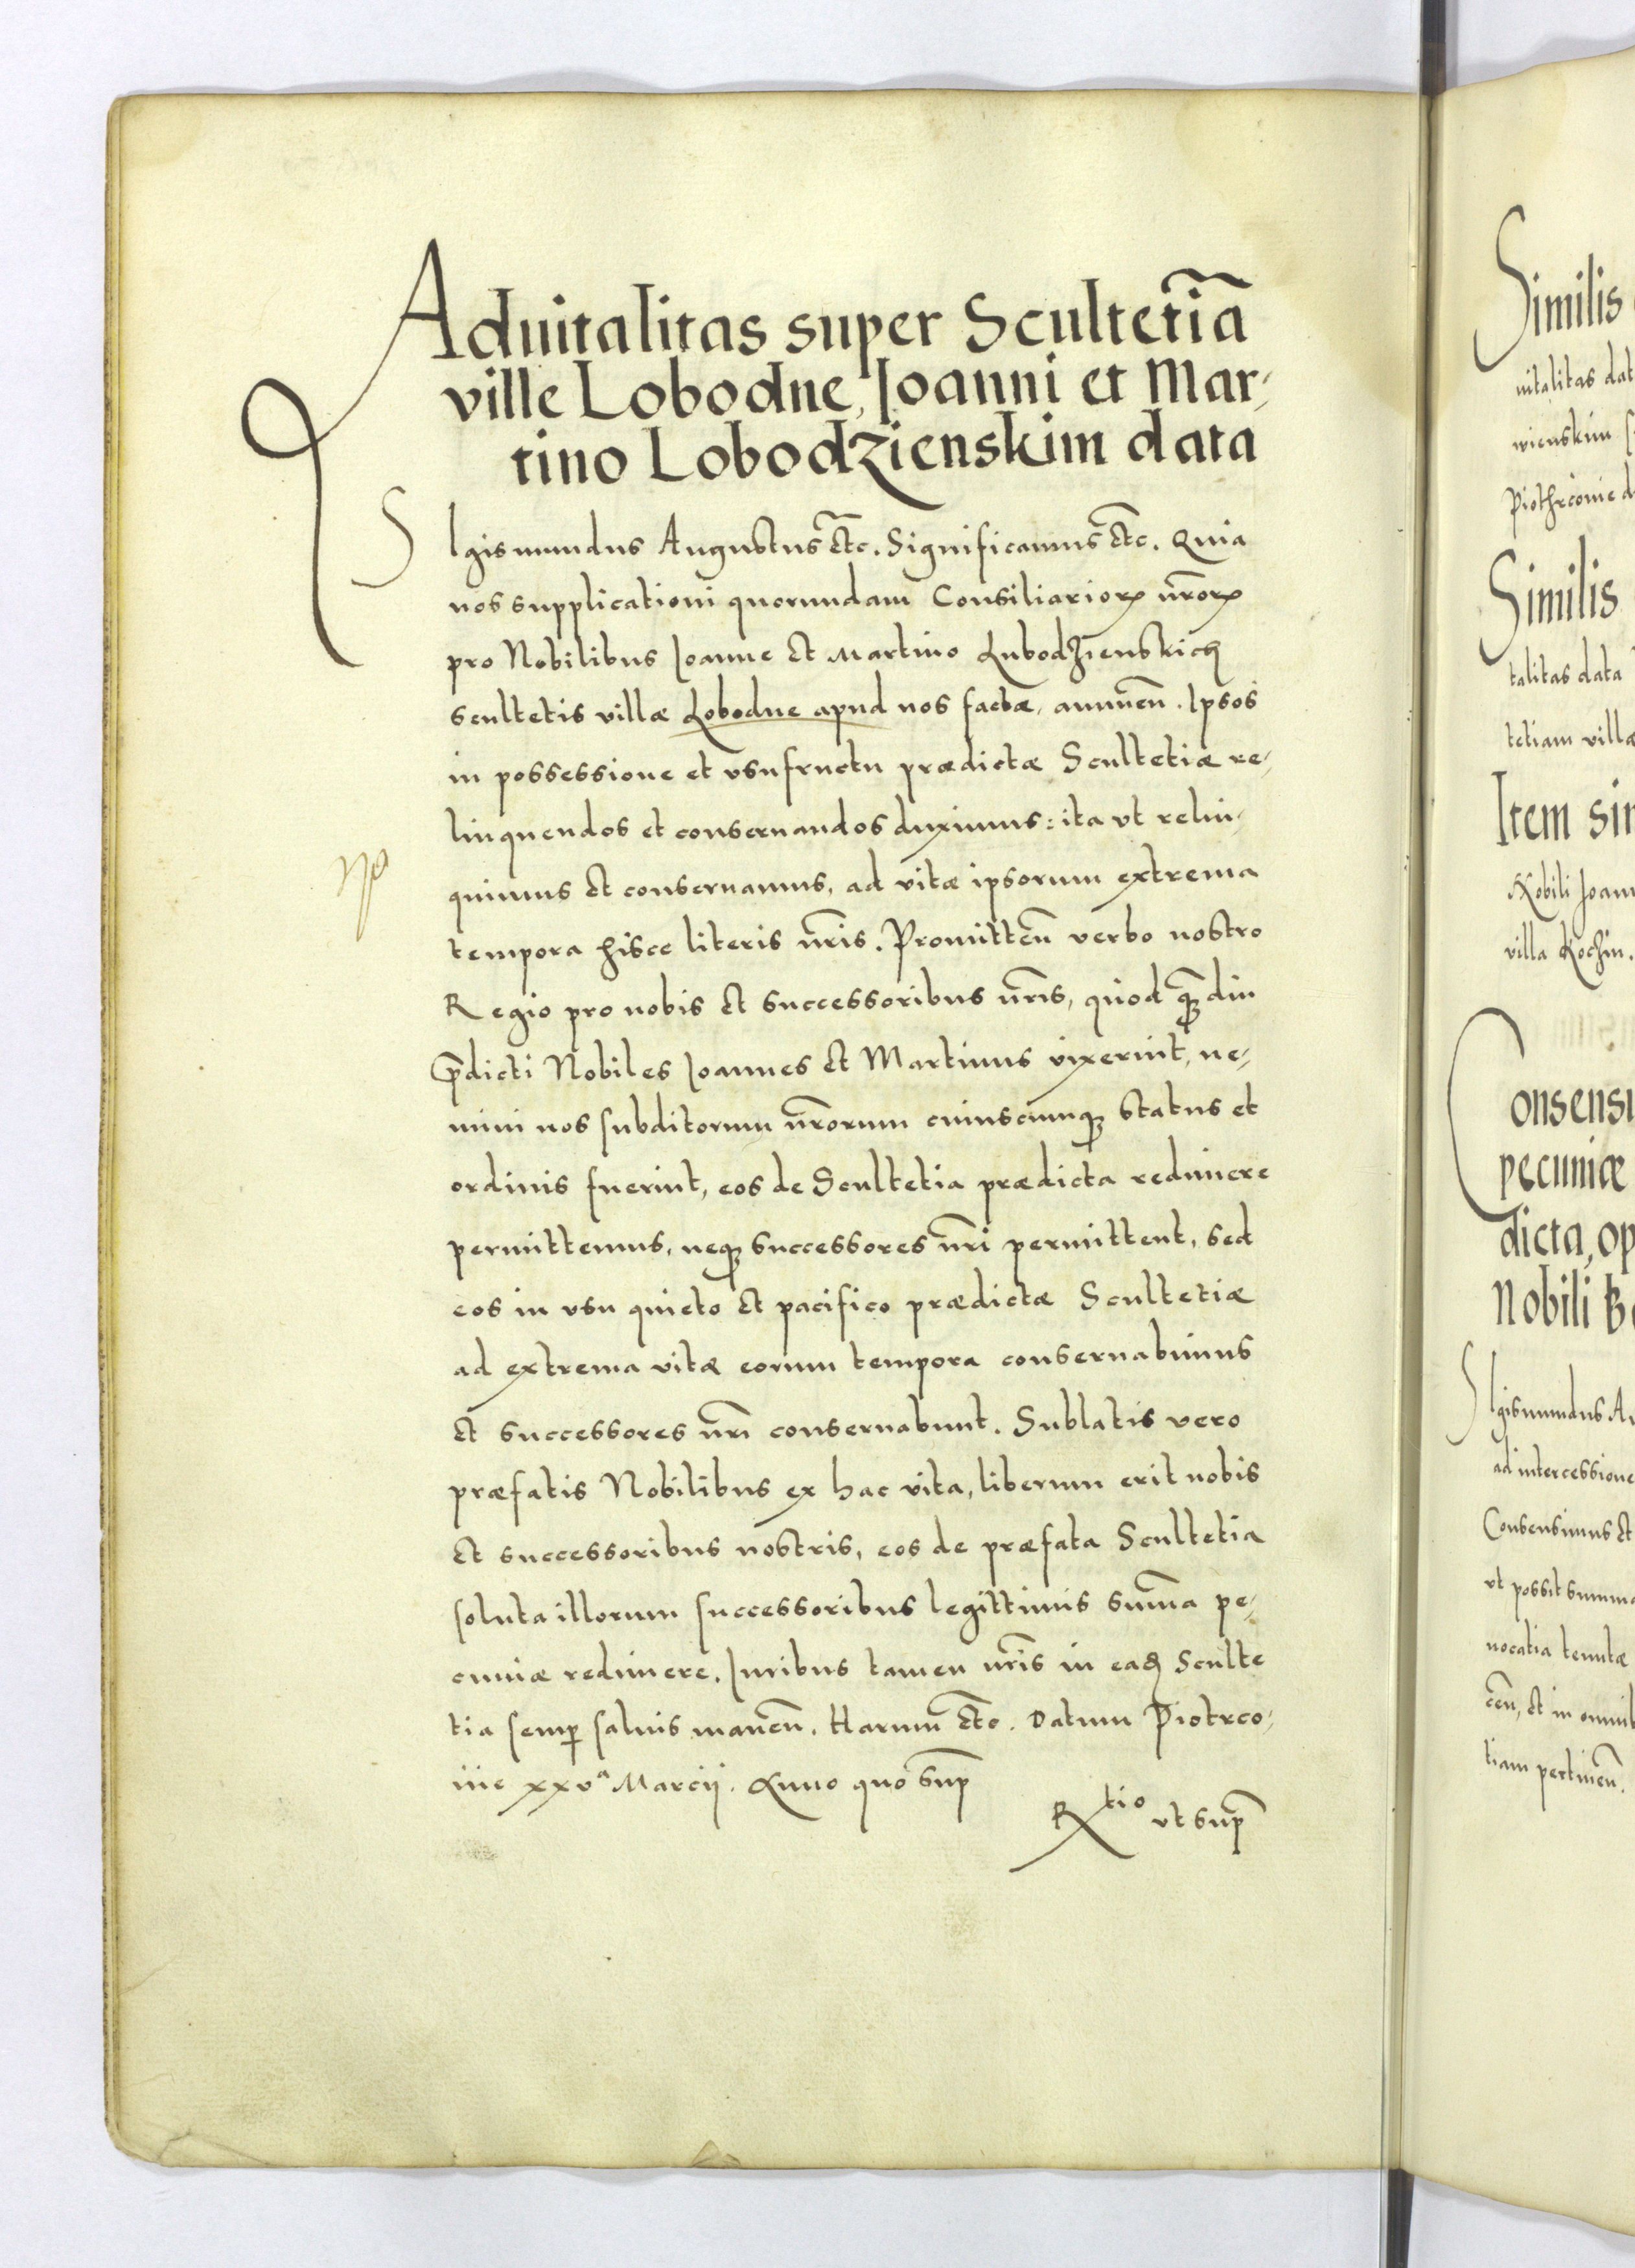 Aduitalitas super Scultetiã
ville Lobodne, Joanni et Mar-
tino Lobodzienskim data
SIgismundus Augustus etc. Significamus etc. Quia
nos supplicationi quorundam Consiliariorꝝ nr̃orꝝ
pro Nobilibus Joanne et Martino Lubodzienskich
scultetis villæ Lobodne apud nos factæ, annuen̄. Ipsos
in possessione et vsufructu prædictæ Scultetiæ re-
linquendos et conseruandos duximus: ita vt relin-
quimus et conseruamus, ad vitæ ipsorum extrema
tempora hisce literis nr̃is. Promitten̄ verbo nostro
Regio pro nobis et successoribus nr̃is, quod qꝫ̃diu
p̃dicti Nobiles Joannes et Martinus vixerint, ne-
mini nos subditorum nr̃orum cuiuscunqꝫ status et
ordinis fuerint, eos de Scultetia prædicta redimere
permittemus, neqꝫ successores nr̃i permittent, sed
eos in vsu quieto et pacifico prædictæ Scultetiæ
ad extrema vitæ eorum tempora conseruabimus
et successores nr̃i conseruabunt. Sublatis vero
præfatis Nobilibus ex hac vita, liberum erit nobis
et successoribus nostris, eos de præfata Scultetia
soluta illorum successoribus legittimis sum̃a pe-
cuniæ redimere. Iuribus tamen nr̃is in eadꝫ Sculte
tia semꝑ saluis manen̄. Harum etc. Datum Piotrco-
uie xxvᵃ Marcij. Anno quo sup̃
Rtio vt sup̃
Similis
uitalitas dat
wienskim
Piothrcouie d
Similis
talitas data
tetiam villæ
Item sim
Nobili Joann
villa Kochin.
Consensu
pecuniæ
dicta, op
Nobili
SIgismundus Au
ad intercessione
Consensimus et
vt possit summa
uocatia tentæ
cen̄, et in omnib
tiam pertinen̄.